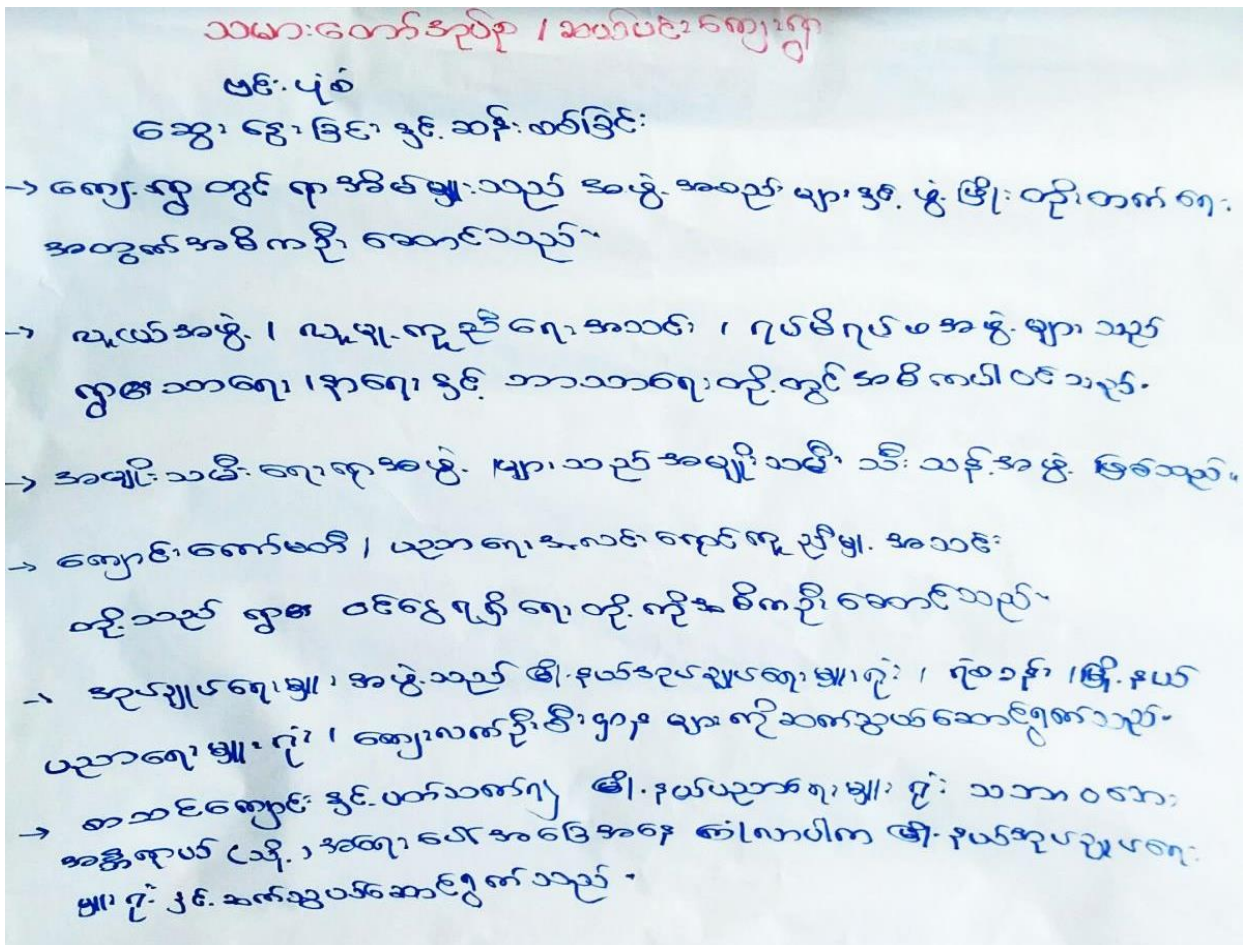 သမားတော်အုပ်စု / ဆယ်ပင်းကျေးရွာ
ဗင်းပုံစံ
ဆွေးနွေးခြင်းနှင့်ဆန်းစစ်ခြင်း
→ ကျေးရွာတွင် ရာအိမ်မှူးသည် အဖွဲ့အစည်းများနှင့် ဖွံ့ဖြိုးတိုးတက်ရေး
အတွက်အဓိကဦးဆောင်သည်။
→ လူငယ်အဖွဲ့ / လူမှုကူညီရေးအသင်း / ရပ်မိရပ်ဖအဖွဲ့များသည်
ရွာ၏သာရေး / နာရေးနှင့် ဘာသာရေးတို့တွင်အဓိကပါဝင်သည်။
→ အမျိုးသမီးရေးရာအဖွဲ့များသည်အမျိုးသမီးသီးသန့်အဖွဲ့ဖြစ်သည်။
→ ကျောင်းကော်မတီ / ပညာရေးအလင်းရောင်ကူညီမှုအသင်း
တို့သည် ရွာ၏ ဝင်ငွေရရှိရေးတို့ကိုအဓိကဦးဆောင်သည်။
→ အုပ်ချုပ်ရေးမှူးအဖွဲ့သည် မြို့နယ်အုပ်ချုပ်ရေးမှူးရုံး / ရဲစခန်း / မြို့နယ်
ပညာရေးမှူးရုံး / ကျေးလက်ဦးစီးဌာနများကိုဆက်သွယ်ဆောင်ရွက်သည်။
→ စာသင်ကျောင်းနှင့်ပတ်သက်၍ မြို့နယ်ပညာရေးမှူးရုံး သဘာဝဘေး
အန္တရာယ် (သို့) အရေးပေါ်အခြေအနေ ကြုံလာပါက မြို့နယ်အုပ်ချုပ်ရေး
မှူးရုံးနှင့်ဆက်သွယ်ဆောင်ရွက်သည်။